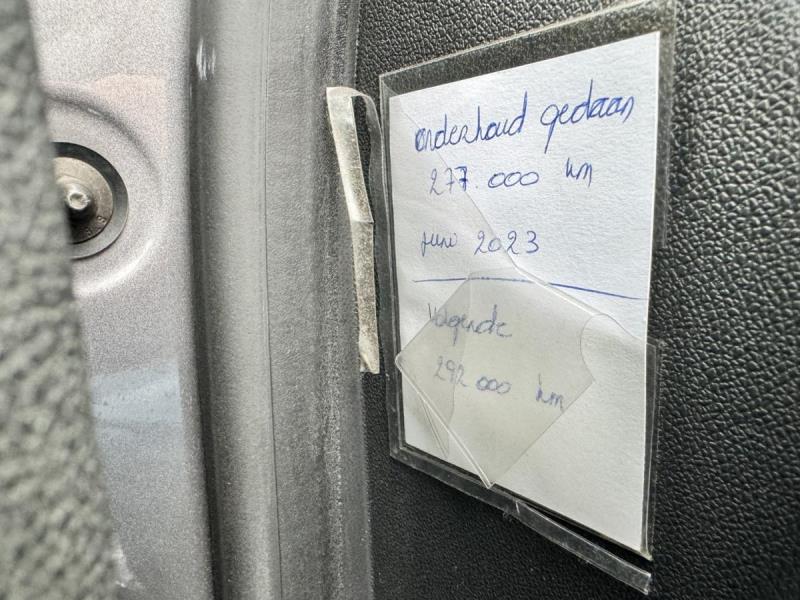 onderhoud gedaan
277.000 km
juni 2023
Volgende
292 000 km